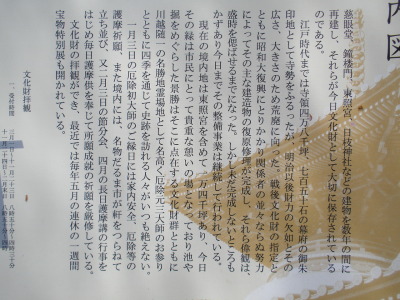 内図
慈眼堂、鐘楼門、東照宮、日枝神社などの建物を数年の間に
再建し、それらが今日文化財として大切に保存されている
のである。
江戸時代までは寺領四万八千坪、七百五十石の幕府の御朱
印地として寺勢をふるったが、明治以後財力の欠如とその
広さ、大きさのため荒廃に向った。戦後文化財の指定と
ともに昭和大復興にとりかかり関係者の並々ならぬ努力
によってその主な建造物の復原修理が完成し、それら偉観は、
盛時を偲ばせるまでになった。しかし未だ完成しないところも
かずあり今日までその整備事業は継続して行われている。
現在の境内地は東照宮を含めて一万四千坪あり、今日
その緑は市民にとって貴重な憩いの場となっており池や
掘をめぐらした景勝はそこに点在する文化財群とともに
川越随一の名勝地霊場地として名高く厄除元三大師のお参り
とともに四季を通じて史跡を訪れる人々がいつも絶えない。
一月三日の厄除初大師のご縁日には家内安全、厄除等の
護摩祈願、また境内には、名物だるま市が軒をつらねて
立ち並び、又二月三日の節分会、四月の長日護摩講の行事を
はじめ毎日護摩供を奉じて所願成就の祈願を厳修している。
文化財の拝観ができ、最近では毎年五月の連休の一週間
宝物特別展も開かれている。
文化財拝観
一、受付時間